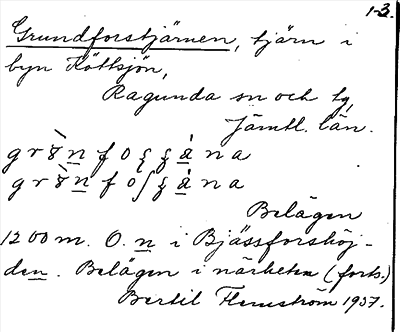 1-3.
Grundforstjärnen, tjärn i
byn Köttsjön,
Ragunda sn och tg,
Jämtl. län.
Belägen
1200 m. O. n i Bjässforshöj-
den. Belägen i närheten (forts.)
Bertil Flemström 1937.